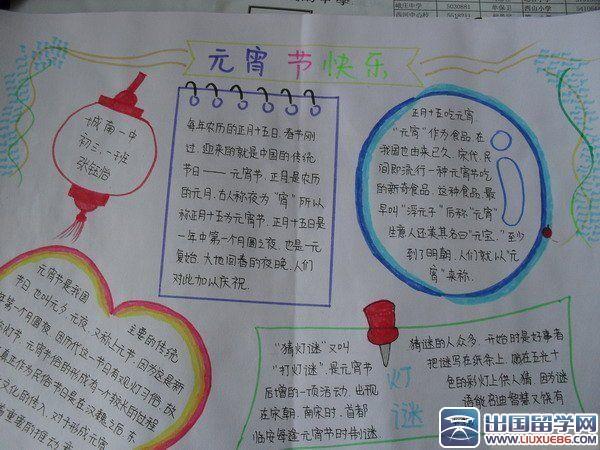 元宵节快乐
城南一中
初三.一班
每年农历的正月十五日.春节刚
过.迎来的就是中国的传统
节日——元宵节.正月是农历
的元月.古人称夜为"宵"所以
称正月十五为元宵节.正月十五日是
一年中第一个月圆之夜.也是一元
复始.大地回春的夜晚.人们
对此加以庆祝.
正月十五吃元宵.
"元宵"作为食品.在
我国也由来已久.宋代.民
间即流行一种元宵节吃
的新奇食品.这种食品.最
早叫"浮元子"后称"元宵"
生意人还美其名曰"元宝."至少
到了明朝.人们就以"元
宵"来称.
元宵节是我国
主要的传统
节日.也叫元夕.元夜.又称上元节.因为这是新
年第一个月圆夜.因历代这一节日有观灯习俗.故
称灯节.元宵节俗的形成有一个较长的过程
真正作为民俗节日是在汉魏之后.东
文化的传入.对于形成元宵
着重要的推动
"猜灯谜"又叫
"打灯谜".是元宵节
后增的一项活动.出现
在宋朝.南宋时.首都
临安每逢元宵节时制谜.
灯
谜
猜谜的人众多.开始时是好事者
把谜写在纸条上.贴在五光十
色的彩灯上供人猜.因为谜
语能启迪智慧又饶有
5030881
西河中心校
5518231
出国留学网
WWW.LIUXUE86.COM